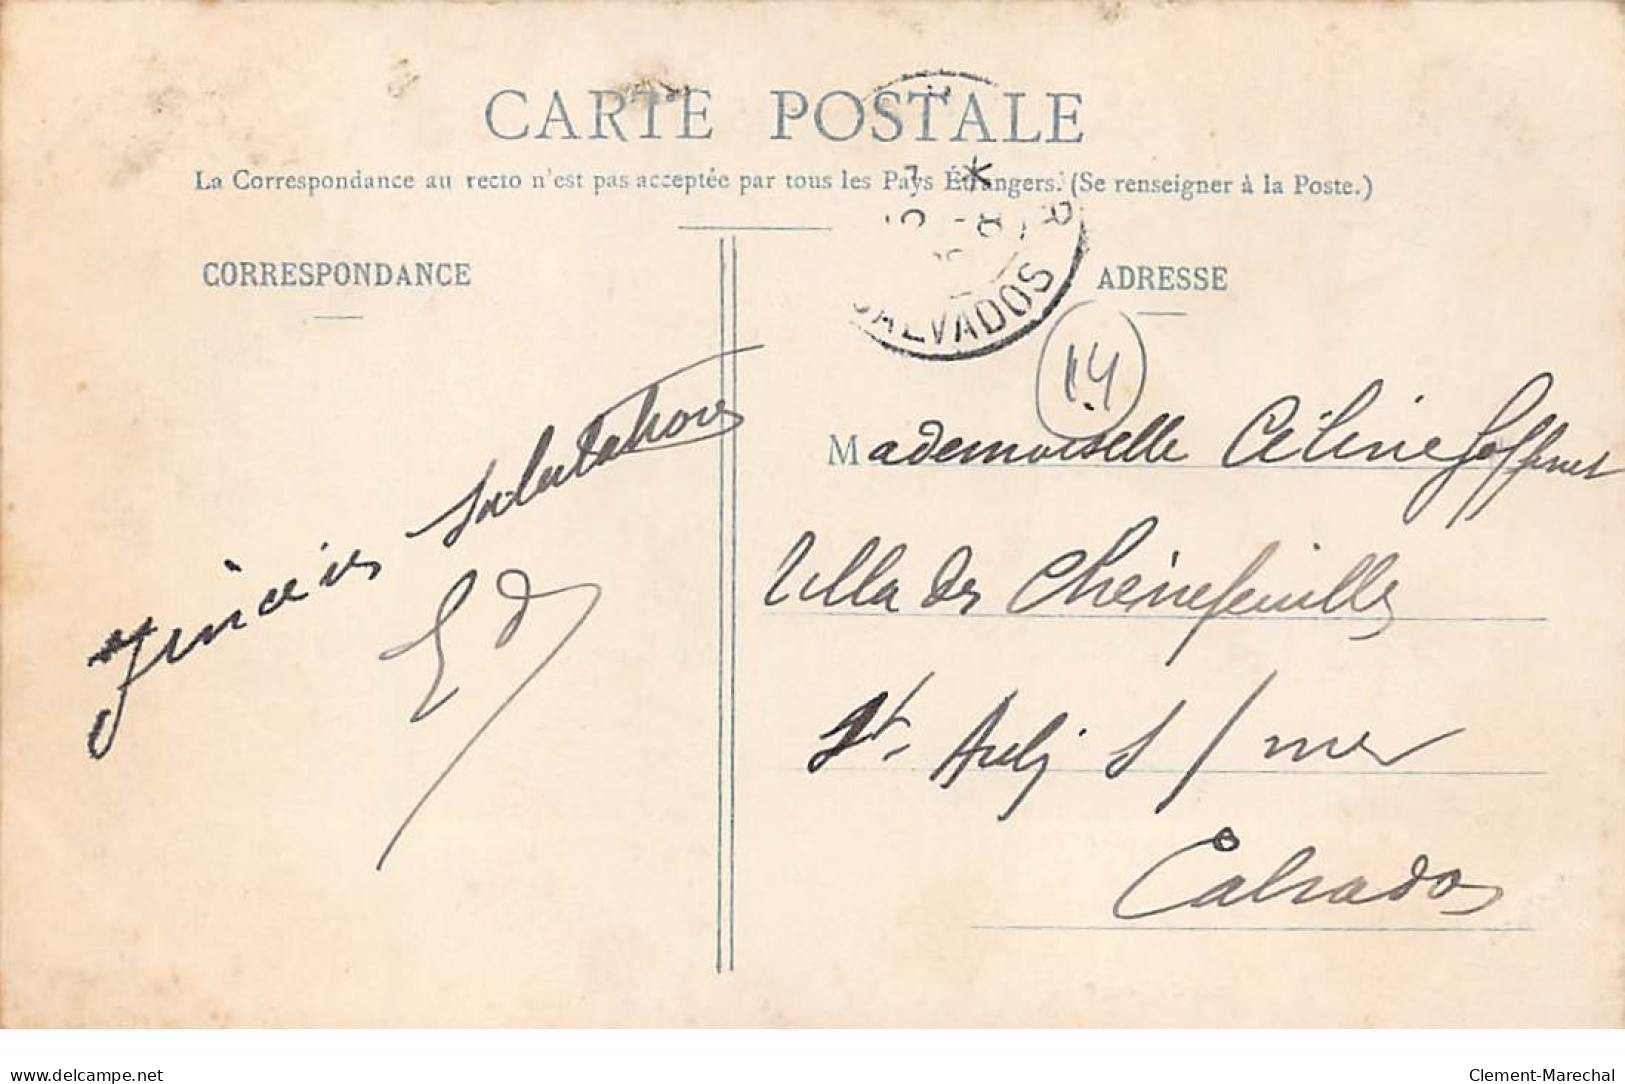 CARTE POSTALE
La Correspondance au recto n'est pas acceptée par tous les Pays Étrangers. (Se renseigner à la Poste.)
CORRESPONDANCE
Sincères Salutations
ED
ADRESSE
CALVADOS
14
Mademoiselle Céline
Villa des Chênefeuilles
St. Aubj s/mer
Calvados
delcampe.net
Clement-Marechal